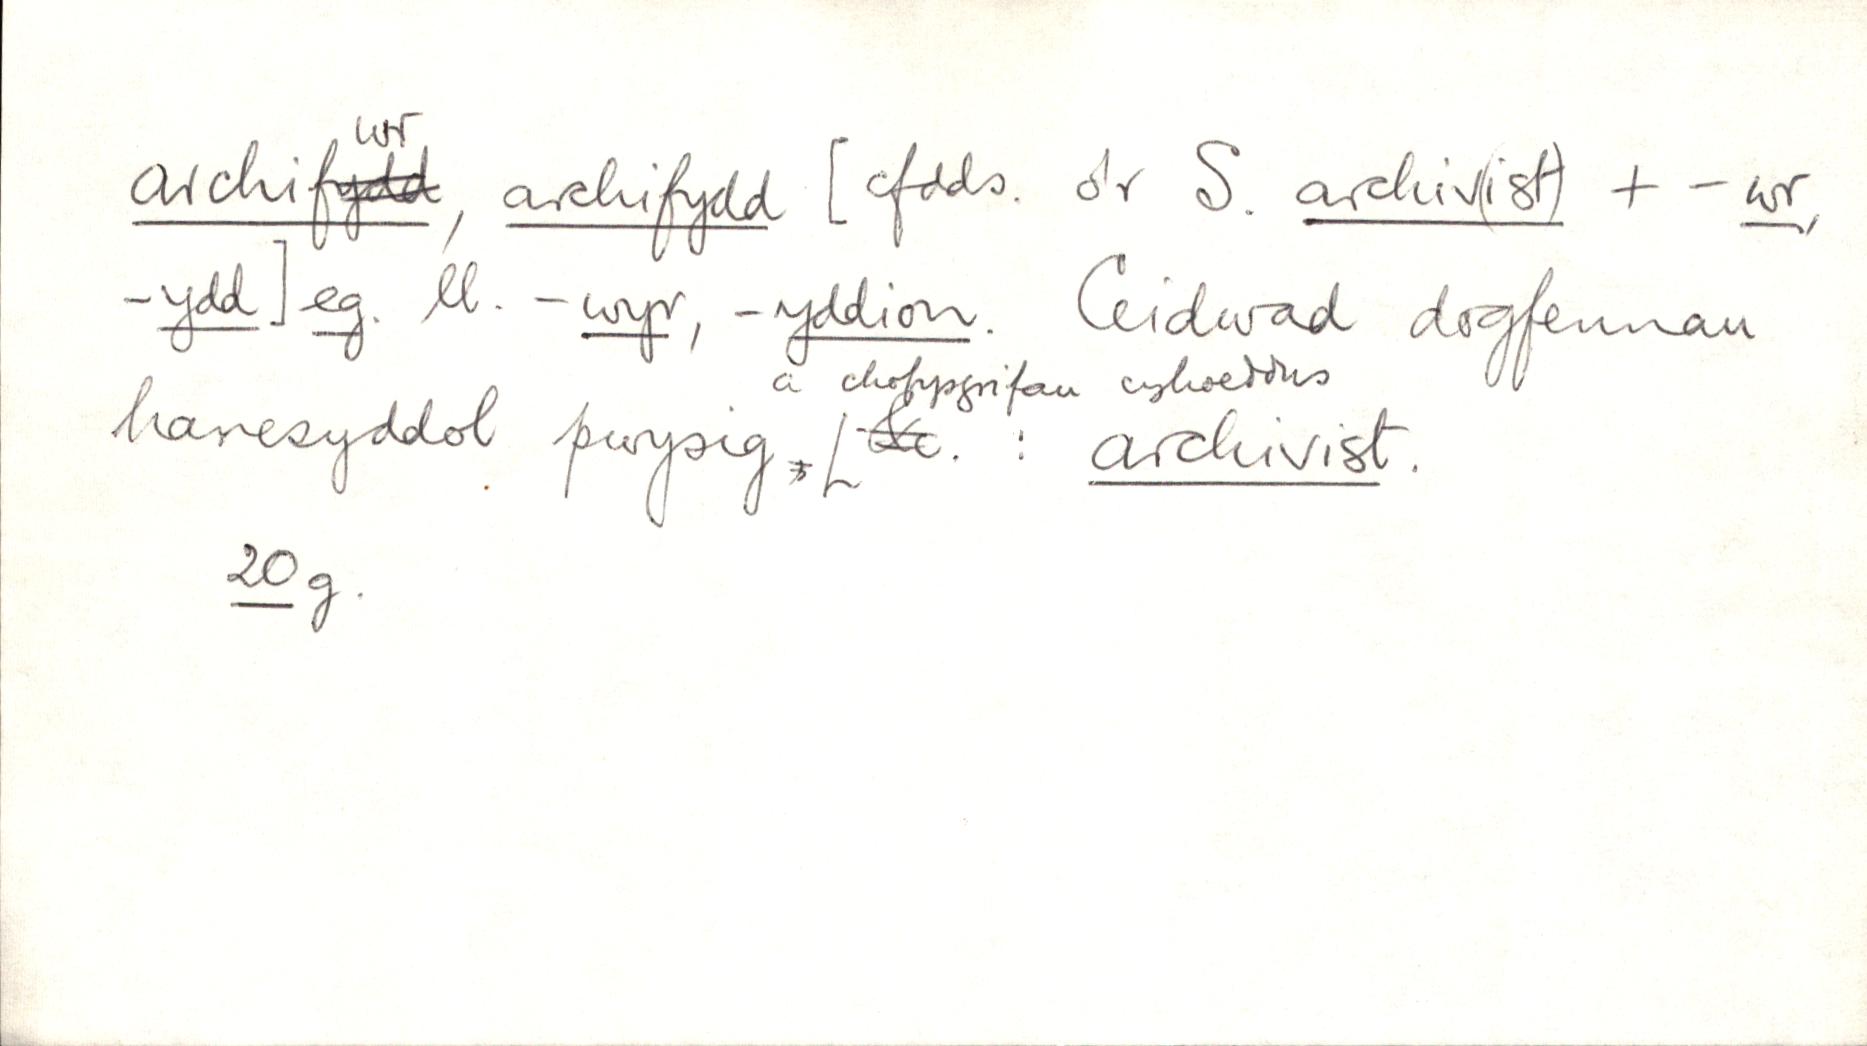 archifwr, archifydd [cfdds. o'r S. archiv(ist) + -wr,
-ydd] eg. ll. -wyr, -yddion. Ceidwad dogfennau
a chofysgrifau cyhoeddus
hanesyddol pwysig, &c. : archivist.
20g.